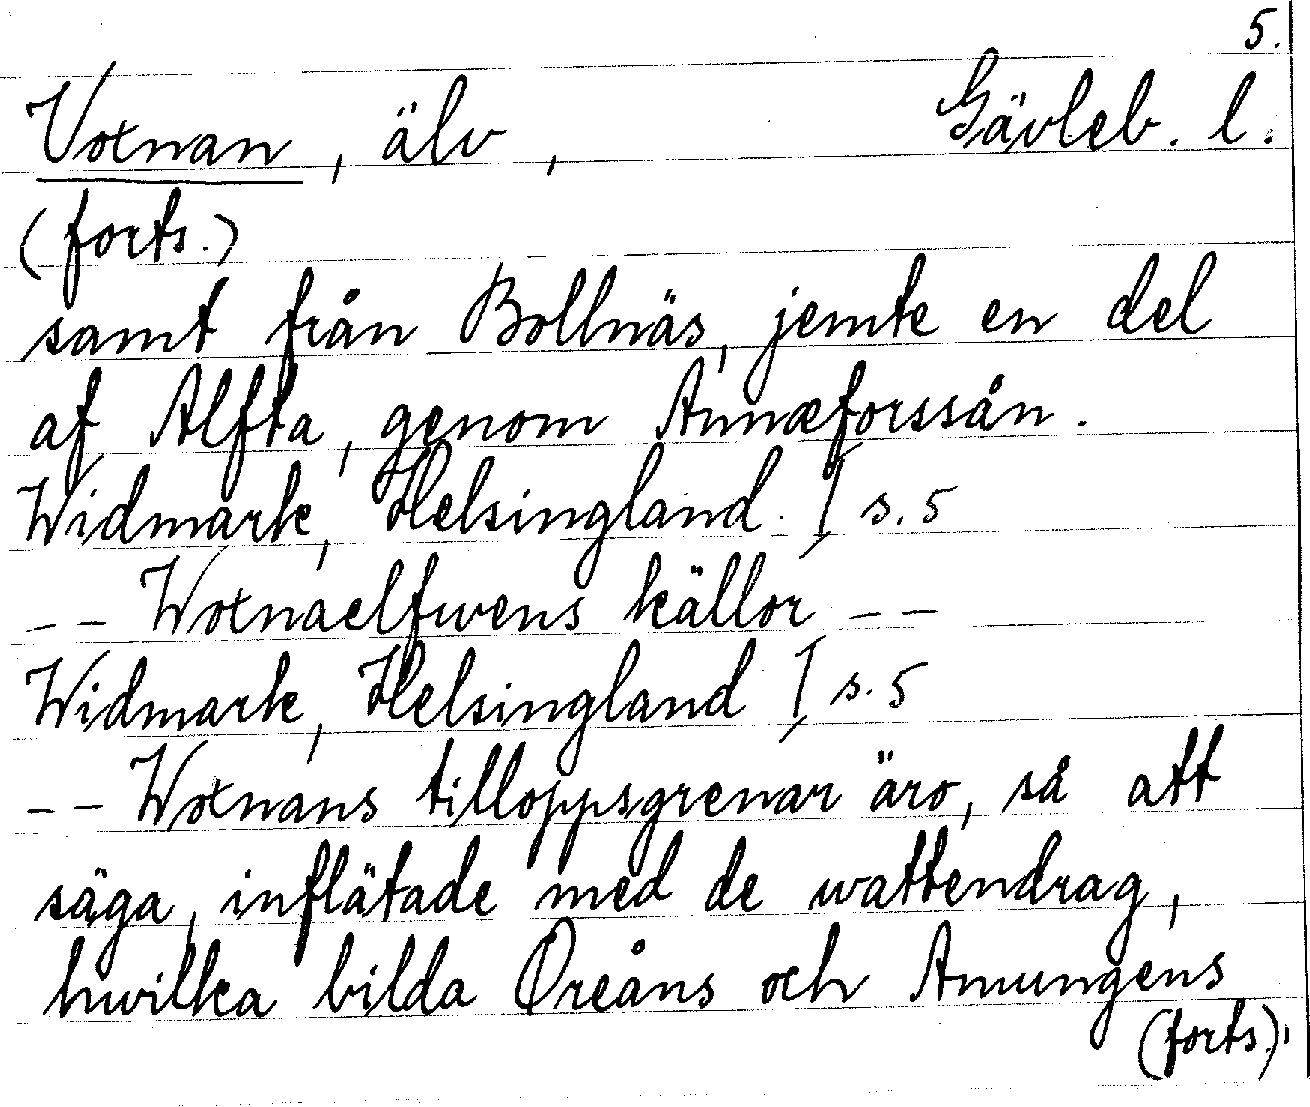 5.
Voxnan, älv, Gävleb. l.
(forts.)
samt från Bollnäs, jemte en del
af Alfta, genom Annæforssån.
Widmark, Helsingland I s. 5
-- Woxnaelfwens källor --
Widmark, Helsingland I s. 5
-- Woxnans tilloppsgrenar äro, så att
säga, inflätade med de wattendrag,
hwilka bilda Oreåns och Amungens
(forts.)